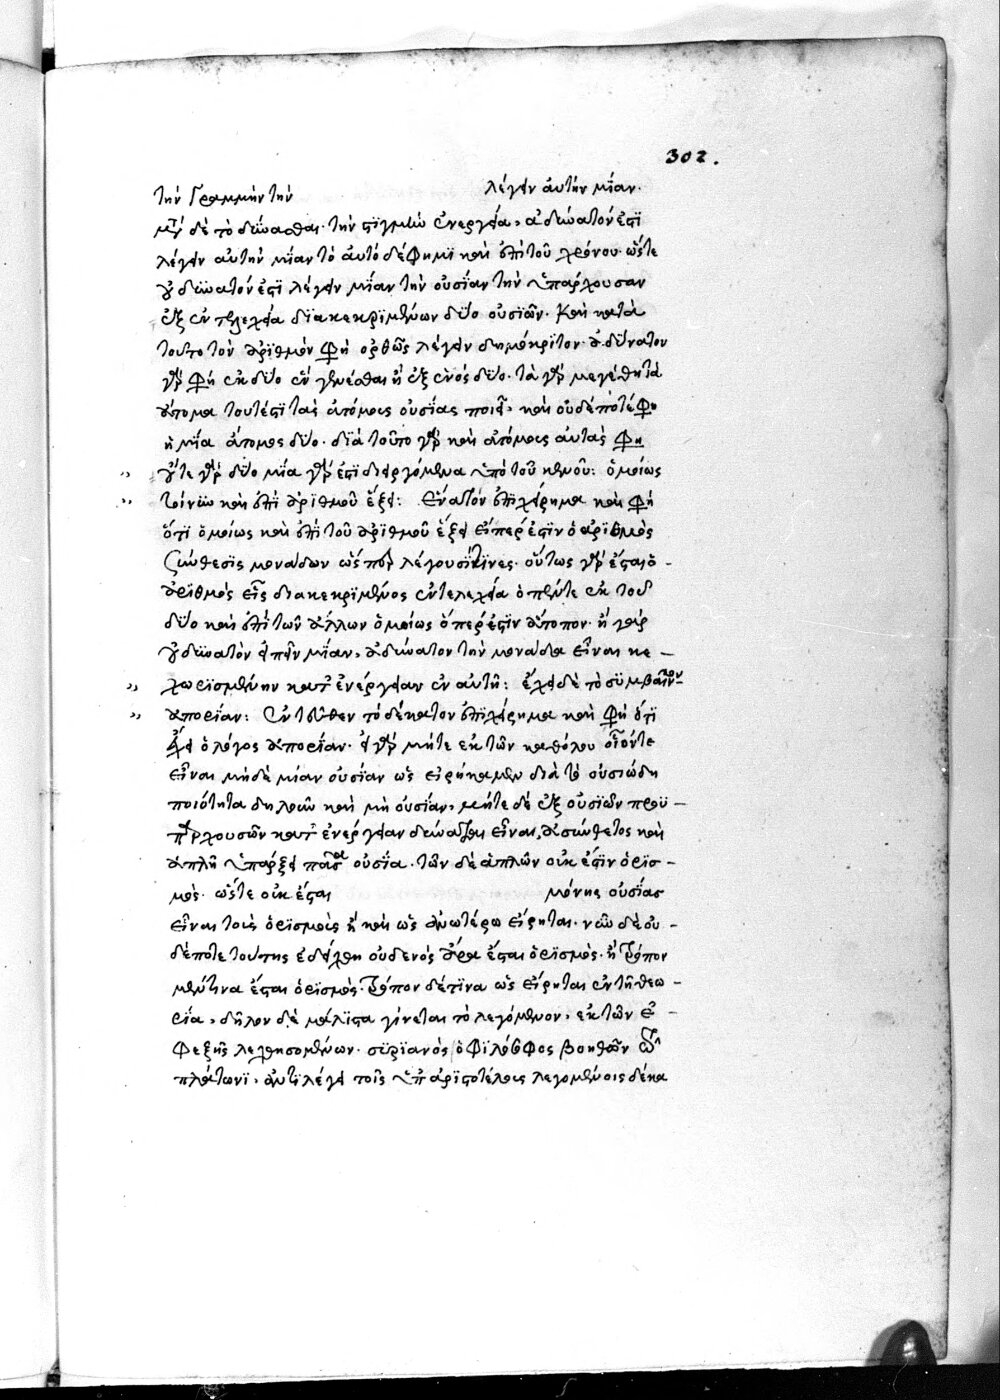 302.
τὴν γραμμὴν τὴν λέγειν αὐτὴν μίαν.
δὲ τὸ δύνασθαι. τὴν στιγμὴν ἐνεργείᾳ, ἀδύνατόν ἐστι
λέγειν αὐτὴν μίαν τὸ αὐτὸ δέ φημι καὶ ἐπὶ τοῦ χρόνου. ὥστε
οὐ δυνατόν ἐστι λέγειν μίαν τὴν οὐσίαν τὴν ὑπάρχουσαν
ἐξ ἐντελεχείᾳ διακεκριμένων δύο οὐσιῶν. καὶ κατὰ
τοῦτο τὸν ἀριθμὸν φησὶ ὀρθῶς λέγειν δημόκριτον. ἀδύνατον
γὰρ φησὶ ἐκ δύο ἓν γενέσθαι ἢ ἐξ ἑνὸς δύο. τὰ γὰρ μεγέθη τὰ
ἄτομα τουτέστι τὰς ἀτόμους οὐσίας ποιεῖ, καὶ οὐδέποτε
ἡ μία ἄτομος δύο. διὰ τοῦτο γὰρ καὶ ἀτόμους αὐτάς φησι
οὔτε γὰρ δύο μία γὰρ ἐστὶ διειργόμενα ὑπὸ τοῦ κενοῦ: ὁμοίως
τοίνυν καὶ ἐπὶ ἀριθμοῦ ἕξει: ἔνατον ἐπιχείρημα καὶ φησὶ
ὅτι ὁμοίως καὶ ἐπὶ τοῦ ἀριθμοῦ ἕξει εἴπερ ἐστὶν ὁ ἀριθμὸς
σύνθεσις μονάδων ὥσπερ λέγουσί τινες. οὕτως γὰρ ἔσται ὁ -
ἀριθμὸς εἷς διακεκριμένος ἐντελεχείᾳ ὁ πέντε ἐκ τοῦ
δύο καὶ ἐπὶ τῶν ἄλλων ὁμοίως ὅπερ ἐστὶν ἄτοπον. ἢ γὰρ
οὐ δυνατὸν εἰπεῖν μίαν, ἀδύνατον τὴν μονάδα εἶναι κε -
χωρισμένην κατ' ἐνέργειαν ἐν αὐτῇ: ἔχει δὲ τὸ συμβαῖνον
ἀπορίαν: ἐντεῦθεν τὸ δέκατον ἐπιχείρημα καὶ φησὶ ὅτι
ἔχει ὁ λόγος ἀπορίαν. εἰ γὰρ μήτε ἐκ τῶν καθόλου οἷόν τε
εἶναι μηδὲ μίαν οὐσίαν ὡς εἰρήκαμεν διὰ τὸ οὐσιώδη
ποιότητα δηλοῦν καὶ μὴ οὐσίαν, μήτε δὲ ἐξ οὐσιῶν προϋ -
παρχουσῶν κατ' ἐνέργειαν δύνασθαι εἶναι, ἀσύνθετος καὶ
ἁπλῆ ὑπάρξει πᾶσα οὐσία. τῶν δὲ ἁπλῶν οὐκ ἔστιν ὁρισ -
μός. ὥστε οὐκ ἔσται μόνης οὐσίας
εἶναι τοὺς ὁρισμοὺς ἢ καὶ ὡς ἀνωτέρω εἴρηται. νῦν δὲ οὐ -
δέποτε ταύτης ἐδείχθη οὐδενὸς ἄρα ἔσται ὁρισμός. ἢ τρόπον
μέν τινα ἔσται ὁρισμός. τρόπον δέ τινα ὡς εἴρηται ἐν τῇ θεω -
ρίᾳ, δῆλον δὲ μάλιστα γίνεται τὸ λεγόμενον, ἐκ τῶν ἐ -
φεξῆς λεχθησομένων. συριανὸς ὁ φιλόσοφος βοηθῶν τῷ
πλάτωνι, ἀντιλέγει τοῖς ὑπ' ἀριστοτέλους λεγομένοις δέκα